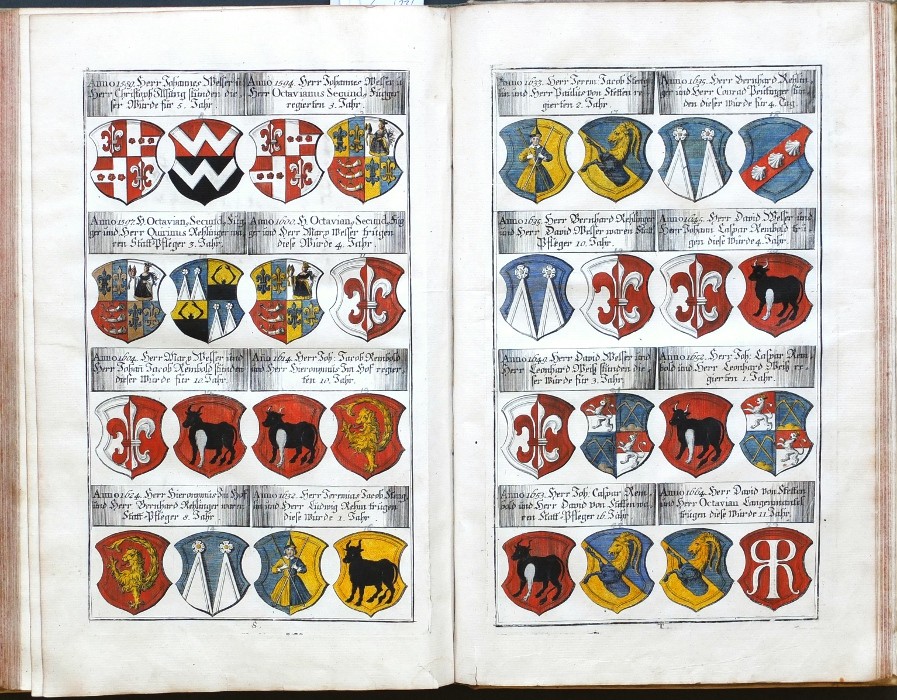 Anno 1590. Herr Johannes Welser ů
Herr Christoph Illsung stůnden die,
ser Würde für 5. Jahr.
Anno 1594. Herr Johannes Welser ů
Herr Octavianus Secund, Fugger
regierten 3. Jahr.
Anno 1597. H. Octavian, Secund, Füg,
ger und Herr Quirinus Rehlinger wa,
ren Statt Pfleger 3. Jahr.
Anno 1600. H. Octavian, Secund, Füg
ger und Herr Marx Welser trügen
diese Würde 4. Jahr.
Anno 1604. Herr Marx Welser und
Herr Johan Jacob Rembold stůnden
dieser Würde für 10. Jahr.
Año 1614. Herr Joh. Jacob Rembold
und Herr Hieronÿmus Im Hof regier,
ten 10. Jahr.
Anno 1624. Herr Hieronÿmus Im Hof
und Herr Bernhard Rehlinger waren
Statt-Pfleger 8. Jahr.
Anno 1632. Herr Jeremias Jacob Steng,
lin und Herr Ludwig Rehm trügen
diese Würde 1. Jahr.
S
Anno 1633. Herr Jerem. Jacob Steng
lin und Herr Paullus von Stetten re,
gierten 2. Jahr.
Anno 1635. Herr Bernhard Rehlin,
ger und Herr Conrad Peutinger stůn,
den dieser Würde für 4. Tag.
Anno 1635. Herr Bernhard Rehlinger
und Herr David Welser waren Statt
Pfleger 10. Jahr.
Anno 1645. Herr David Welser und
Herr Johann Caspar Rembold trů
gen diese Würde 4. Jahr.
Anno 1649. Herr David Welser und
Herr Leonhard Weiß stůnden die,
ser Würde für 3. Jahr.
Anno 1652. Herr Joh: Caspar Rem,
bold und Herr Leonhard Weiß re,
gierten 1. Jahr.
Anno 1653. Herr Joh: Caspar Rem,
bold und Herr David von Stetten wa,
ren Statt-Pfleger 16. Jahr.
Anno 1664. Herr David von Stetten
und Herr Octavian Langenmantel
trůgen diese Würde 11. Jahr.
T